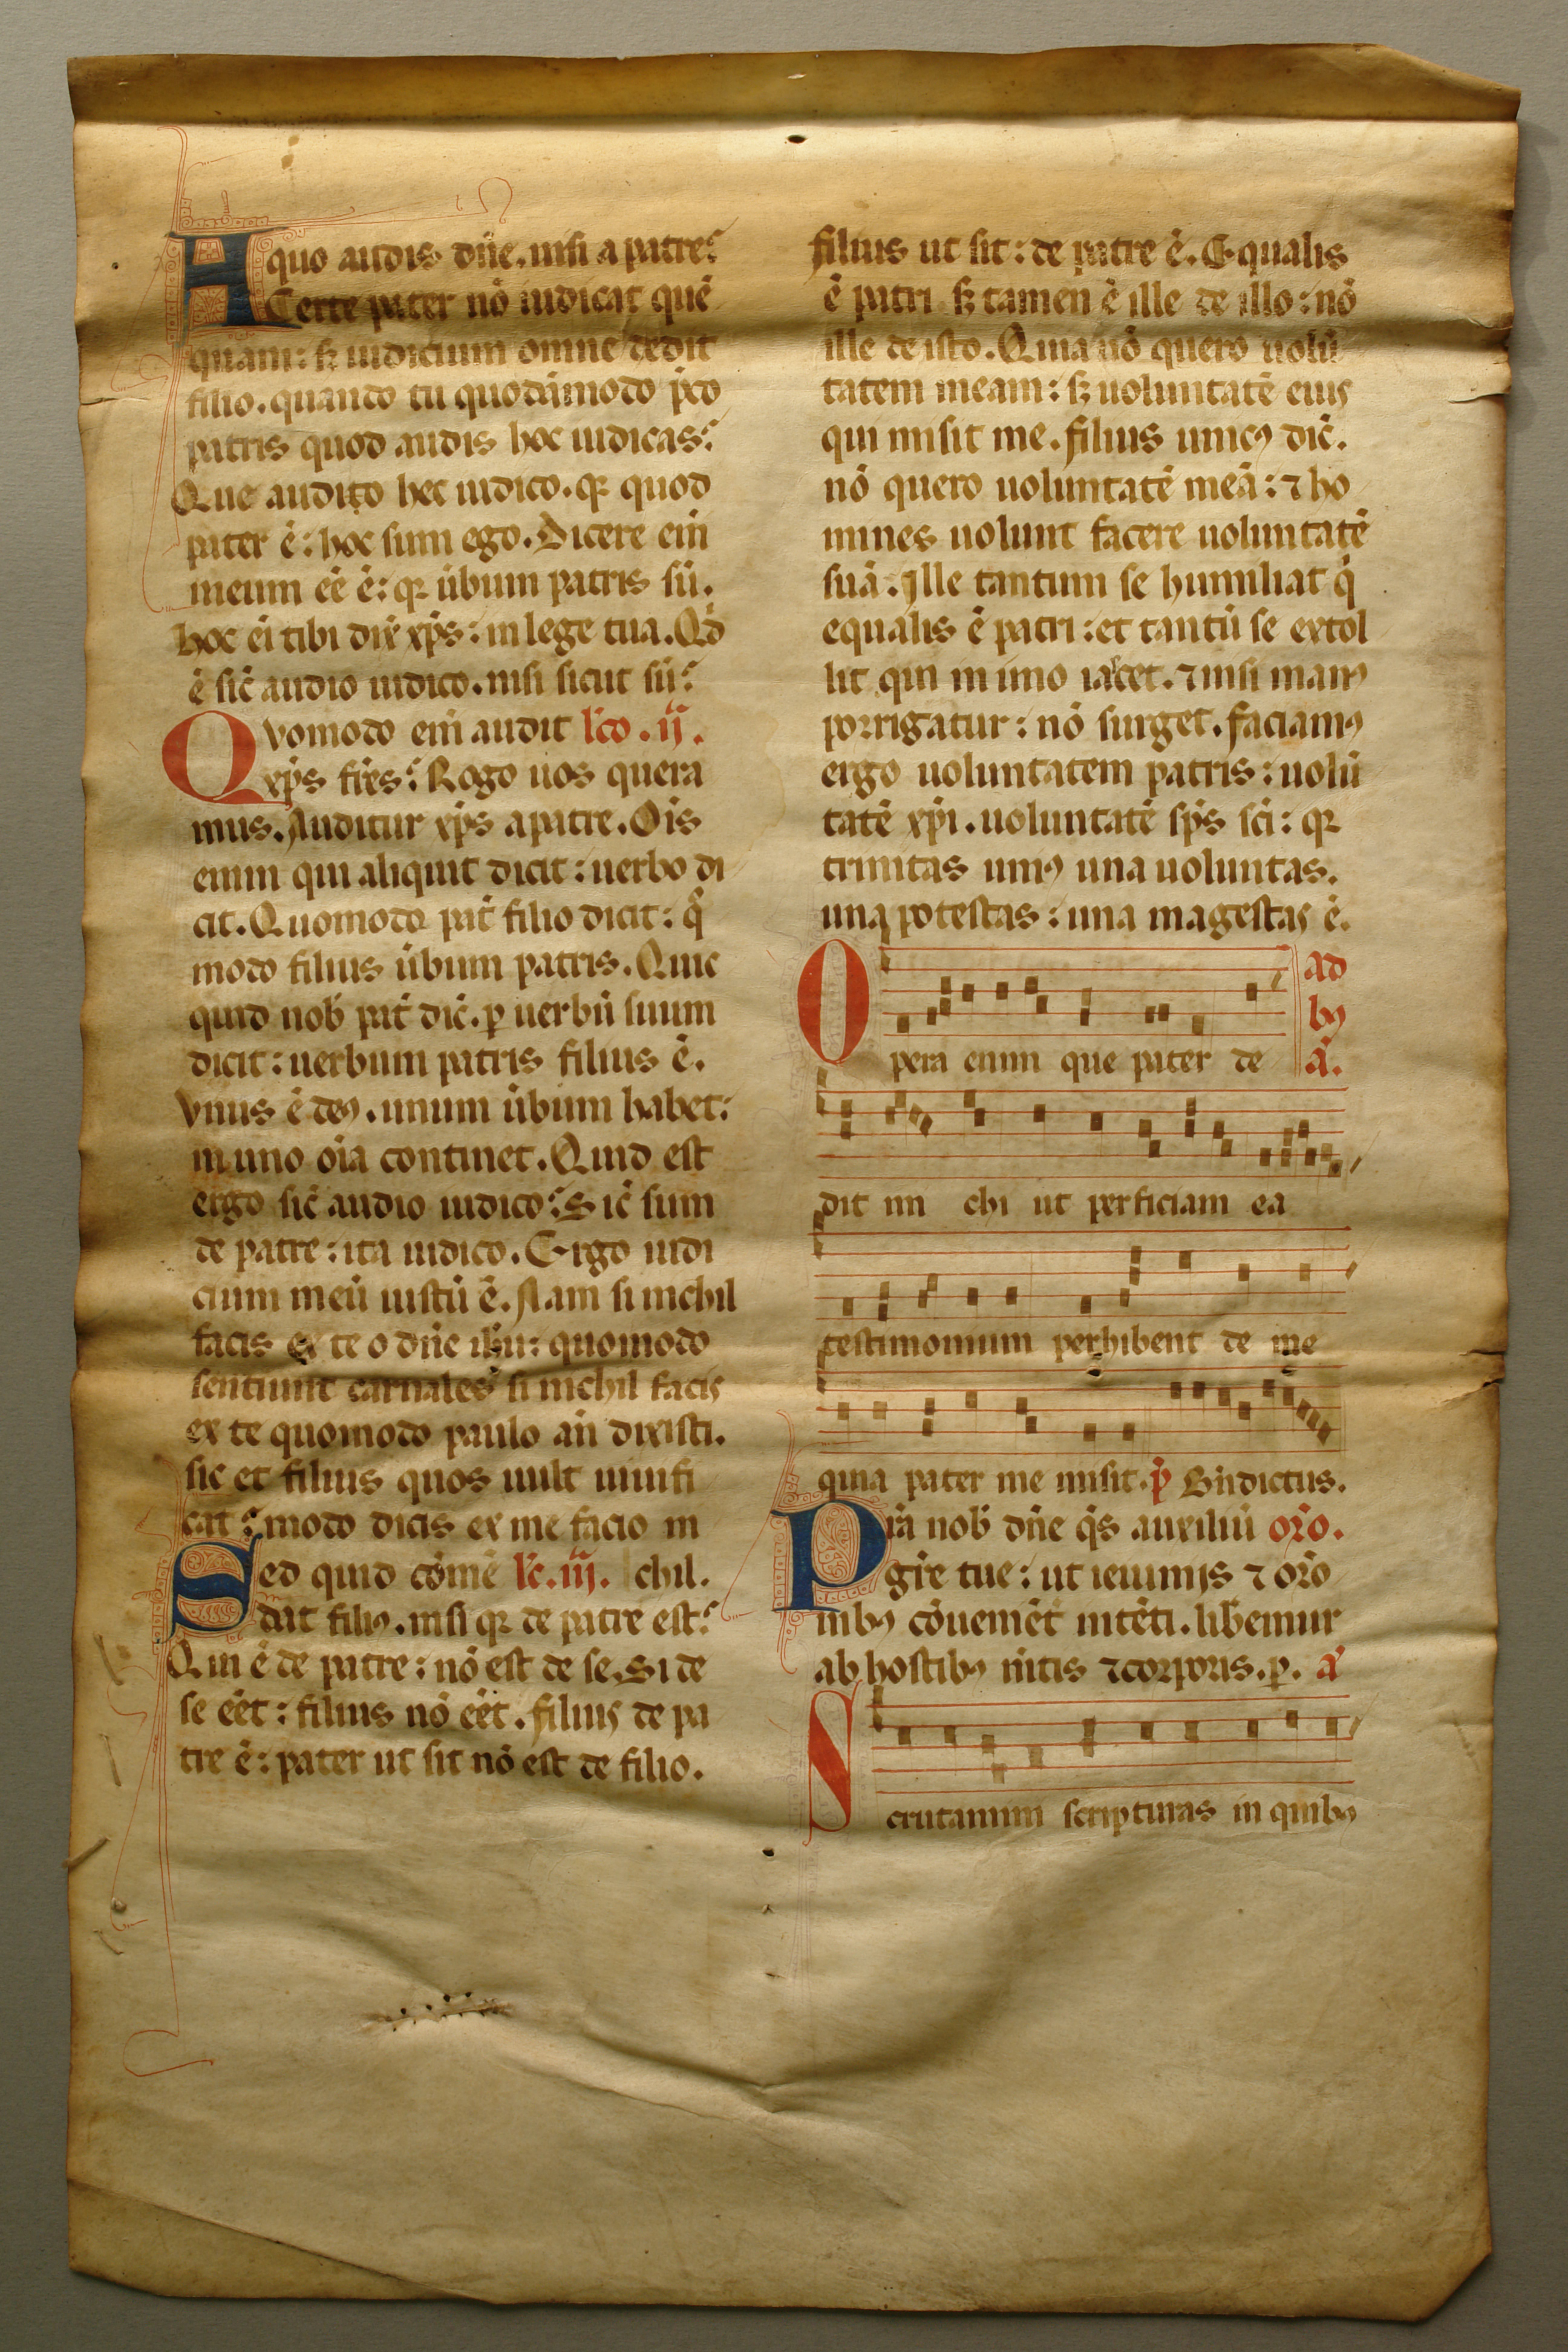 A quo audis dn̄e. nisi a patre?
Certe pater nō iudicat quē
quam: sꝫ iudicium omne dedit
filio. quando tu quodāmodo
patris quod audis hoc iudicas?
Que audito hec iudico. qꝛ quod
pater ē: hoc sum ego. Dicere eiɴ̄
meum eē ē: qꝛ ūbum patris sū.
hoc ei tibi dix̄ xp̄s: in lege tua. Qd̄
ē sic̄ audio iudico. nisi sicut sū?
Quomodo eim̄ audit lc̄o. ij.
xp̄s fr̄es? Rogo uos quera
mus. Auditur xp̄s a patre. Oīs
enim qui aliquit dicit: uerbo di
cit. Quomodo pat̄ filio dicit: q̊
modo filius ūbum patris. Quic
quid nob̄ pat̄ dic̄. ꝑ uerbū suum
dicit: uerbum patris filius ē.
Vnus ē deꝰ. unum ūbum habet:
in uno oīa continet. Quid est
ergo sic̄ audio iudico? Sic̄ sum
de patre: ita iudico. Ergo iudi
cium meū iustū ē. Nam si nichil
facis ex te o dn̄e ih̄u: quomodo
sentiunt carnales si nichil facis
ex te quomodo paulo an̄ dixisti.
sic et filius quos uult uiuifi
cat? modo dicis ex me facio ni
Sed quid cōmē lc̄. iij. chil.
dat filiꝰ. nisi qꝛ de patre est?
Qui ē de patre: nō est de se. Si de
se eēt: filius nō eēt. filius de pa
tre ē: pater ut sit nō est de filio.
filius ut sit: de patre ē. Equalis
ē patri sꝫ tamen ē ille de illo: nō
ille de isto. Quia nō quero uolū
tatem meam: sꝫ uoluntatē eius
qui misit me. filius unicꝰ dic̄.
nō quero uoluntatē meā: ⁊ ho
mines uolunt facere uoluntatē
suā. Ille tantum se humiliat q̇
equalis ē patri: et tantū se extol
lit qui in imo iacet. ⁊ nisi manꝰ
porrigatur: nō surget. faciamꝰ
ergo uoluntatem patris: uolū
tatē xp̄i. uoluntatē sp̄s sc̄i: qꝛ
trinitas uniꝰ una uoluntas.
una potestas: una magestas ē.
ad
bꝰ
Opera enim que pater de a̅.
dit mi chi ut perficiam ea
testimonium perhibent de me
quia pater me misit. p̄ Bn̄dictus.
Pr̄a nob̄ dn̄e q̄s auxiliū or̄o.
gr̄e tue: ut ieiuniis ⁊ or̄o
nibꝰ cōuenient̄ intēti. lib̄emur
ab hostibꝰ m̄tis ⁊ corporis. p. a̅
Scrutamini scripturas in quibꝰ